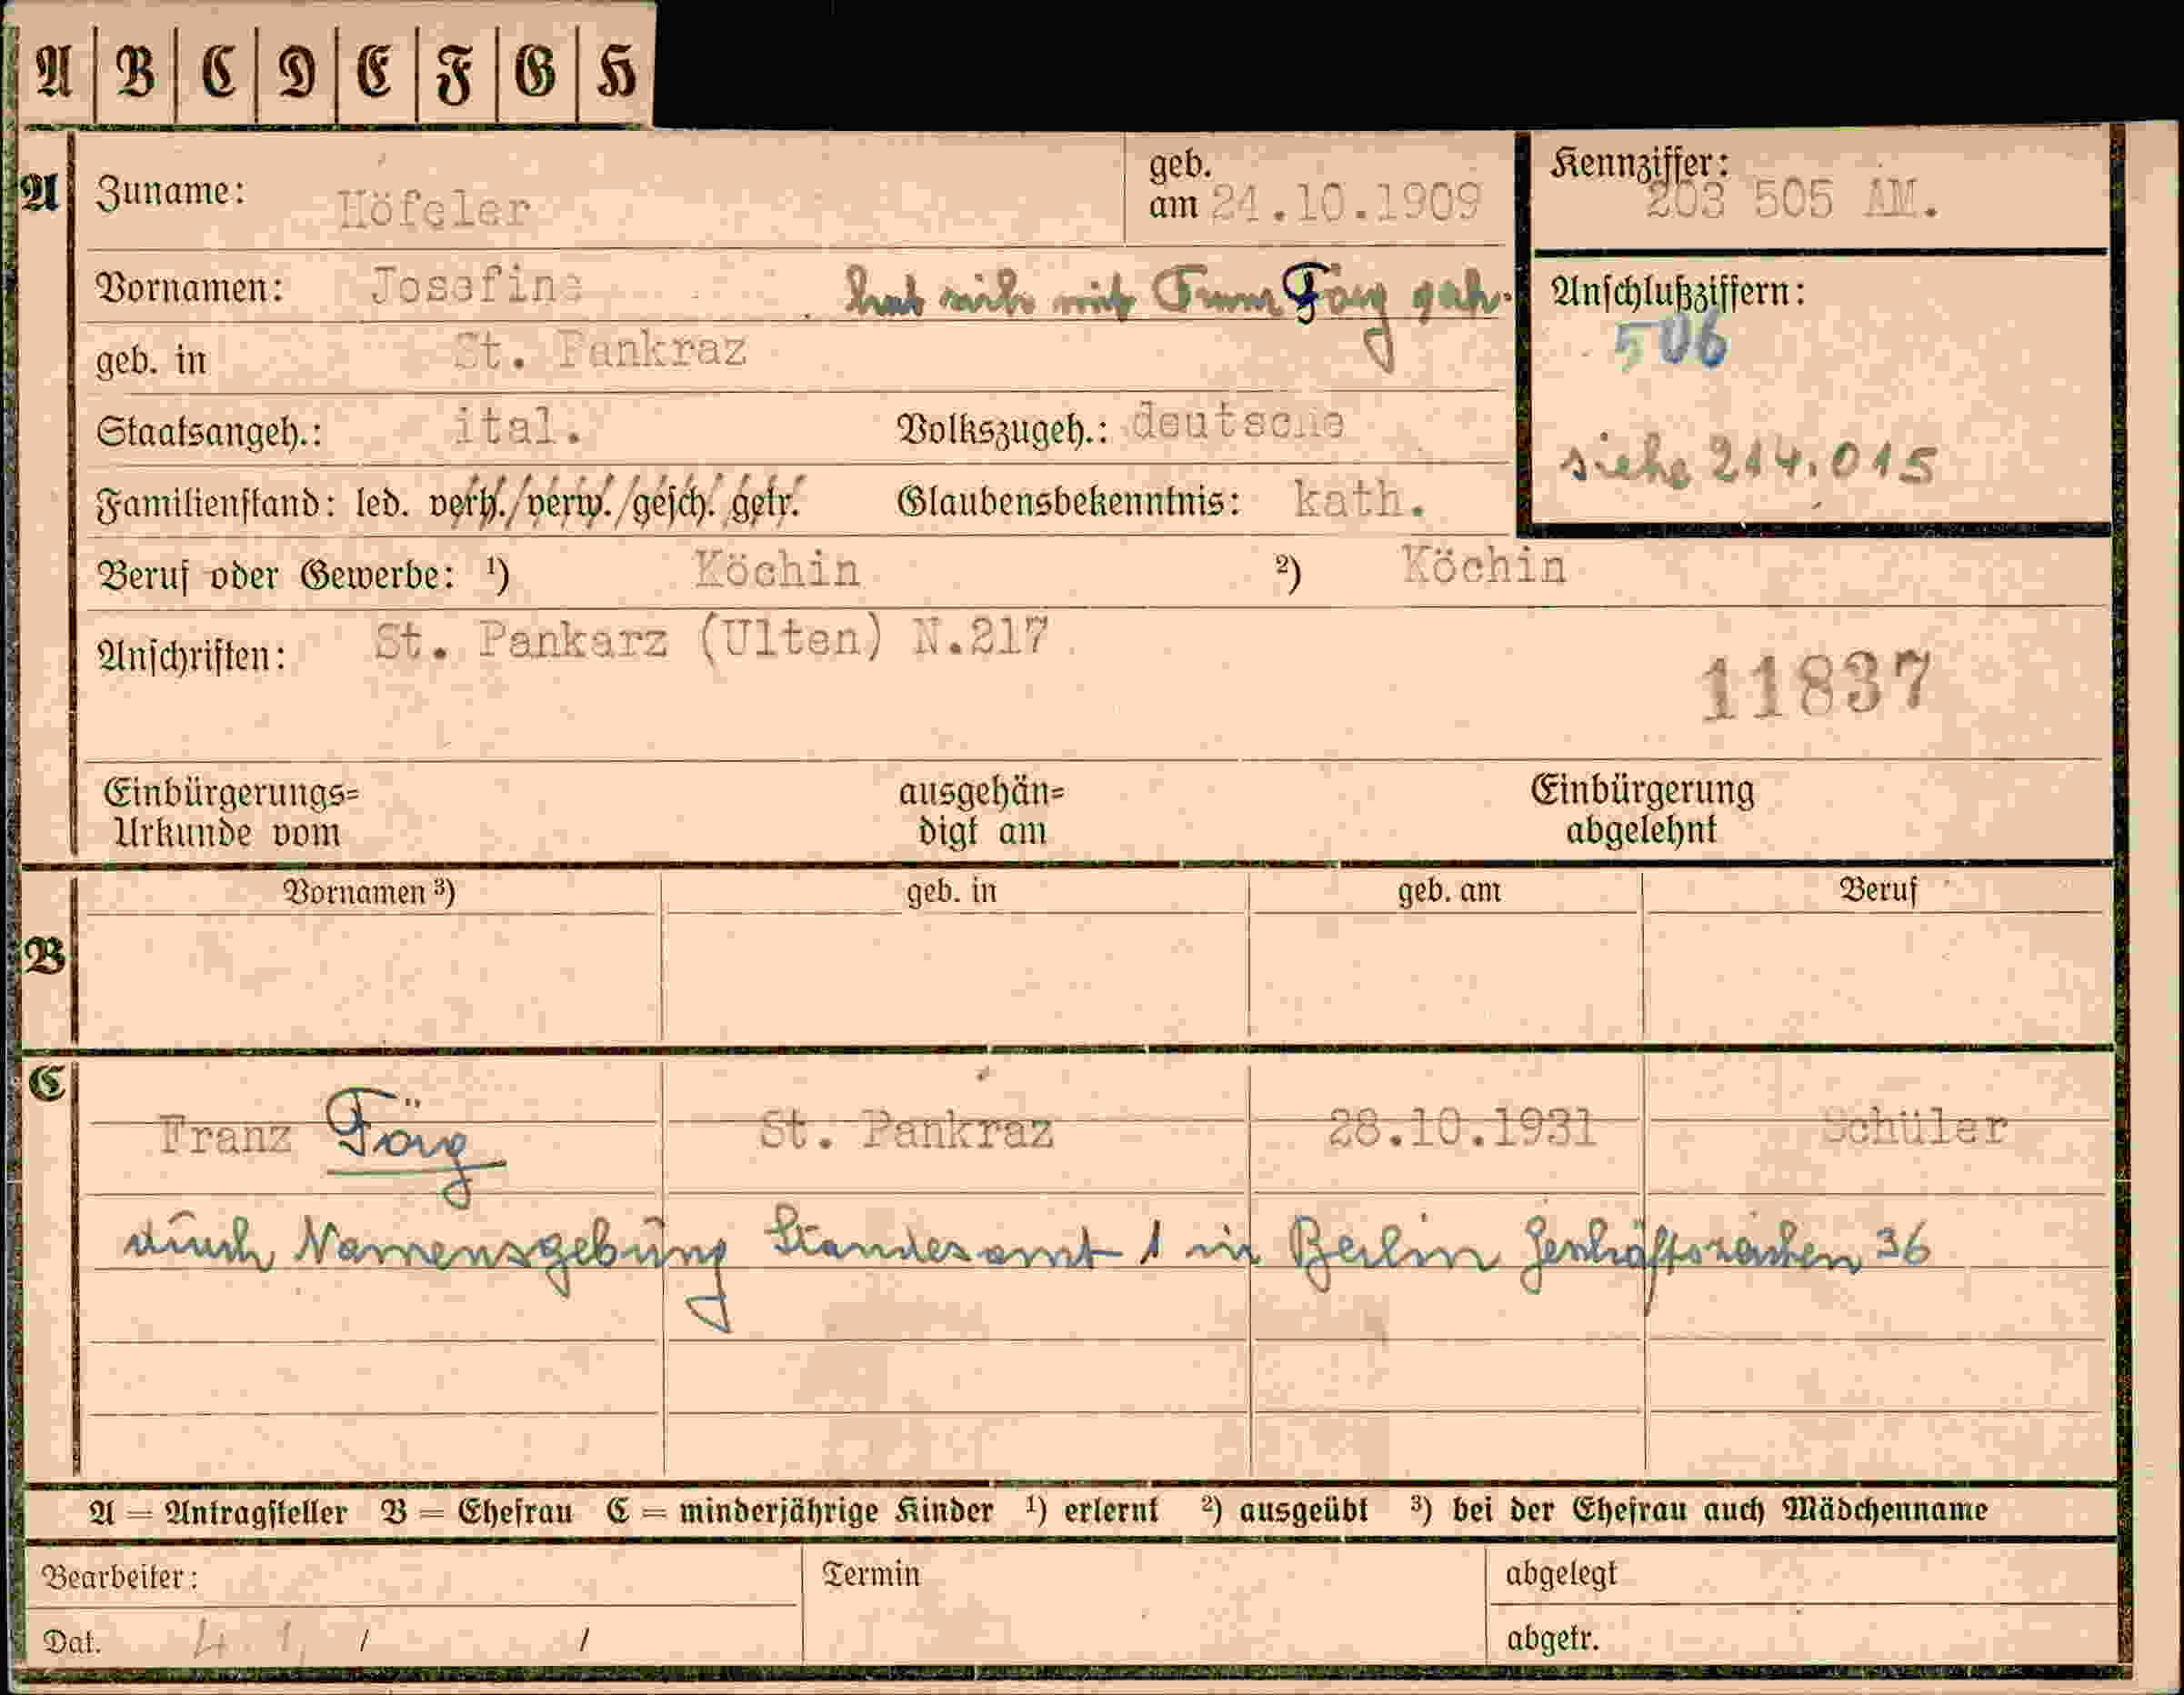 A B C D E F G H
A Zuname: Höfeler geb. am 24.10.1909 Kennziffer: 203 505 AM.
Vornamen: Josefine hat sich mit Förg Anschlußziffern:
geb. in St. Pankraz 506
Staatsangeh.: ital. Volkszugeh.: deutsche siehe 214.015
Familienstand: led. verh./verw./gesch. getr. Glaubensbekenntnis: kath.
Beruf oder Gewerbe: ¹) Köchin ²) Köchin
Anschriften: St. Pankarz (Ulten) N.217
11837
Einbürgerungs= ausgehän= Einbürgerung
Urkunde vom digt am abgelehnt
Vornamen ³) geb. in geb. am Beruf
B
C
Franz Förg St. Pankraz 28.10.1931 Schüler
durch Namensgebung Standesamt 1 in Berlin Geschäftszeichen 36
A = Antragsteller B = Ehefrau C = minderjährige Kinder ¹) erlernt ²) ausgeübt ³) bei der Ehefrau auch Mädchenname
Bearbeiter: Termin abgelegt
Dat. / / abgetr.